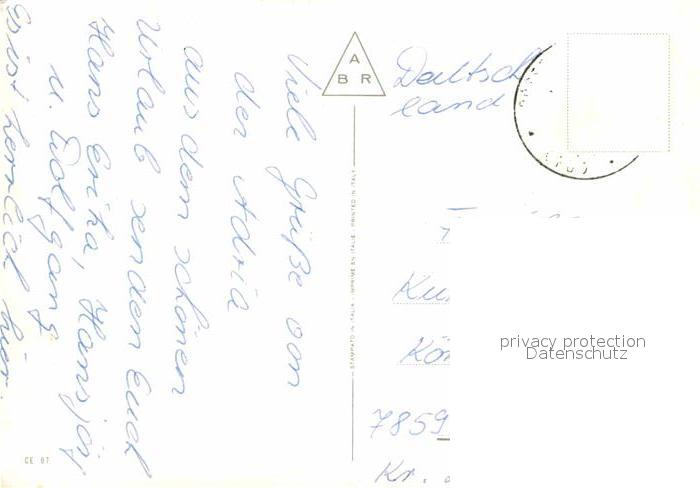 Viele Grüße von
der Adria
aus dem schönen
Urlaub senden Euch
Hans Erika, Hansjörg
u. Wolfgang.
Es ist herrlich hier.
A
B R
STAMPATO IN ITALIA - IMPRIME EN ITALIE - PRINTED IN ITALY
CE 87
Deutsch
land
7859
Kr.
privacy protection
Datenschutz